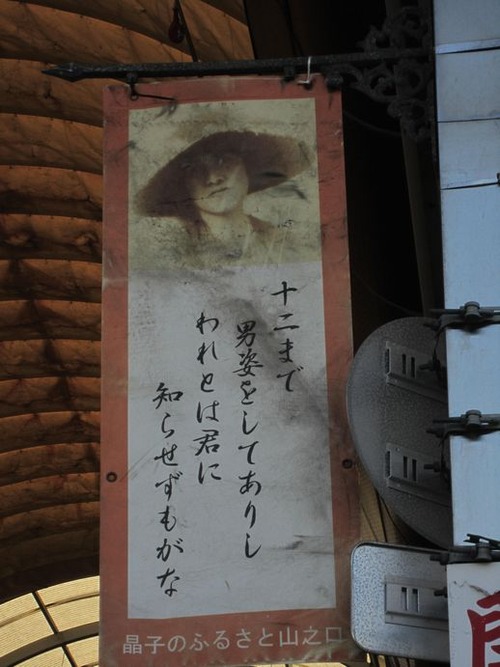 十二まで
男姿をしてありし
われとは君に
知らせずもがな
晶子のふるさと山之口